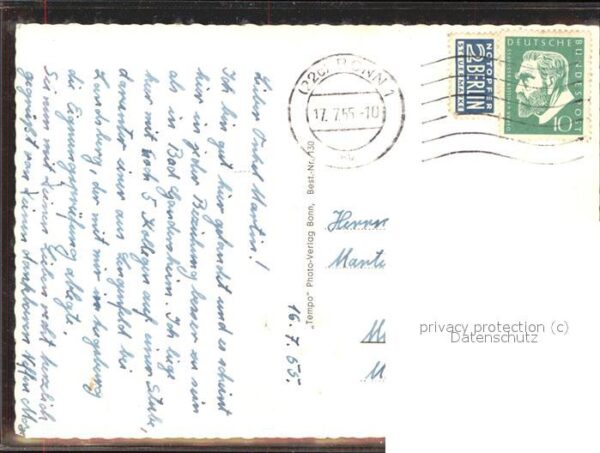 Lieber Onkel Martin!
Ich bin gut hier gelandet und es scheint
hier in jeder Beziehung besser zu sein
als in Bad Gandersheim. Ich liege
hier mit noch 5 Kollegen auf einer Stube,
darunter einer aus Lingenfeld bei
der mit mir in
die Eignungsprüfung ablegte.
Sei nun mit Deinen Lieben recht herzlich
gegrüßt von Deinem dankbaren Neffen
16.7.55.
„Tempo" Photo-Verlag Bonn, Best.-Nr. 130
(22c) BONN 1
17.7.55-10
NOTOPFER
2 BERLIN
STEUERMARKE
DEUTSCHE BUNDESPOST
10
Herrn
privacy protection (c)
Datenschutz